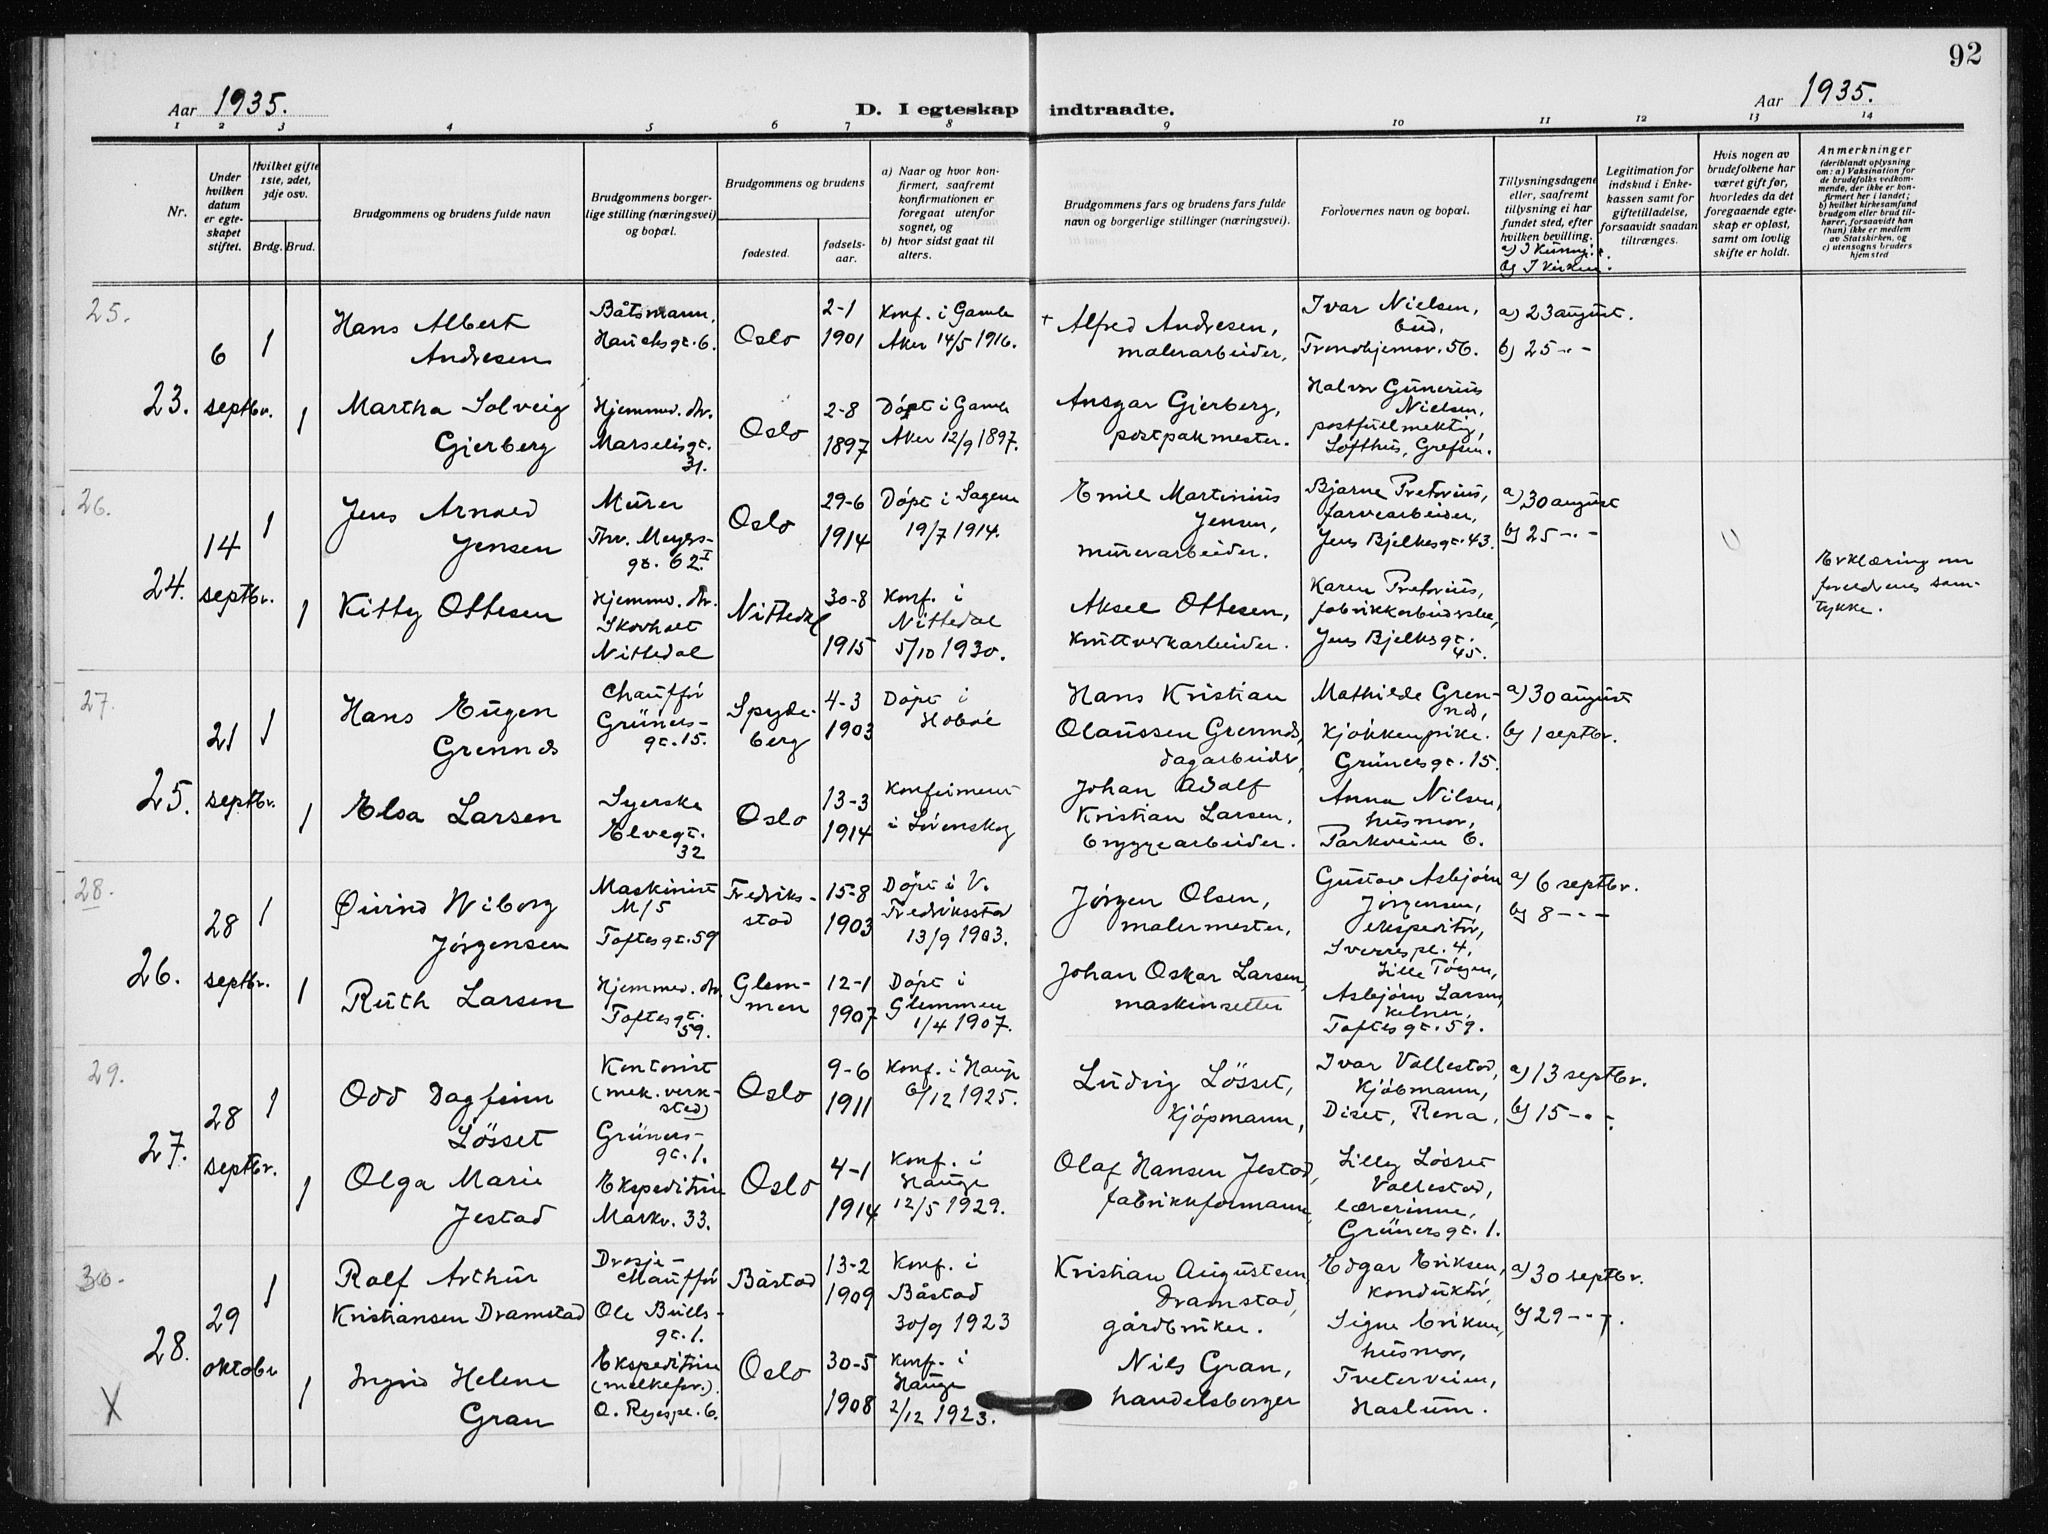 92
Aar 1935.
D. I egteskap indtraadte.
Aar 1935.
1 2 3 4 5 6 7 8 9 10 11 12 13 14
Nr.
Under
hvilken
datum
er egte-
skapet
stiftet.
Hvilket gifte
1ste, 2det,
3dje osv.
Brdg. Brud.
Brudgommens og brudens fulde navn
Brudgommens borger-
lige stilling (næringsvei)
og bopæl.
Brudgommens og brudens
fødested.
fødsels-
aar.
a) Naar og hvor kon-
firmert, saafremt
konfirmationen er
foregaat utenfor
sognet, og
b) hvor sidst gaat til
alters.
Brudgommens fars og brudens fars fulde
navn og borgerlige stillinger (næringsvei).
Forlovernes navn og bopæl.
Tillysningsdagene
eller, saafremt
tillysning ei har
fundet sted, efter
hvilken bevilling.
b) I kirken.
Legitimation for
indskud i Enke-
kassen samt for
giftetilladelse,
forsaavidt saadan
tiltrænges.
Hvis nogen av
brudefolkene har
været gift før,
hvorledes da det
foregaaende egte-
skap er opløst,
samt om lovlig
skifte er holdt.
Anmerkninger
(deriblandt oplysning
om: a) Vaksination for
de brudefolks vedkom-
mende, der ikke er kon-
firmert her i landet;
b) hvilket kirkesamfund
brudgom eller brud til-
hører, forsaavidt han
(hun) ikke er medlem
av Statskirken, og
c) utensogns bruders
hjemsted
25.
23.
6
septbr.
1
Hans Albert
Andresen
Båtsmann,
Hauchsgt. 6.
Oslo
2-1
1901
Konf. i Gamle
Aker 14/5 1916.
+ Alfred Andresen,
malerarbeider,
Ivar Nielsen,
bud,
Trondhjemsv. 56.
a) 23 august.
b) 25 -"-
1
Martha Solveig
Gjerberg
Hjemmev. dtr.
Marselisgt.
31.
Oslo
2-8
1897
Døpt i Gamle
Aker 12/9 1897.
Ansgar Gjerberg,
postpakmester.
Halvor Gunerius
Nielsen,
postfullmektig,
Lofthus, Grefsen.
26.
24.
14
septbr.
1
Jens Arnold
Jensen
Murer
Thv. Meyers-
gt. 62 I
Oslo
29-6
1914
Døpt i Sagene
19/7 1914.
Emil Martinius
Jensen,
murerarbeider.
Bjarne Pretorius,
farvearbeider,
Jens Bjelkesgt. 43.
a) 30 august
b) 25 -"-
1
Kitty Ottesen
Hjemmev. dtr.
Skovholt
Nittedal
Nittedal
30-8
1915
Konf. i
Nittedal
5/10 1930.
Aksel Ottesen,
kruttverkarbeider.
Karen Pretorius,
fabrikkarbeiderske,
Jens Bjelkesgt.
45.
Erklæring om
foreldrenes sam-
tykke.
27.
25.
21
septbr.
1
Hans Eugen
Grennes
Chauffør
Grüners-
gt. 15.
Spyde-
berg
4-3
1903
Døpt i
Hobøl
Hans Kristian
Olaussen Grennes,
dagarbeider,
Mathilde Gren-
nes,
Kjøkkenpike.
Grünersgt. 15.
a) 30 august
b) 1 septbr.
1
Elsa Larsen
Syerske
Elvegt.
32
Oslo
13-3
1914
Konfirmert
i Sørenskog
Johan Adolf
Kristian Larsen,
bryggearbeider.
Anna Nilsen,
husmor,
Parkveien 6.
28.
26.
28
septbr.
1
Øivind Wiborg
Jørgensen
Maskinist
M/S
Toftesgt. 59
Fredriks-
stad
15-8
1903
Døpt i V.
Fredriksstad
13/9 1903.
Jørgen Olsen,
malermester,
Gustav Asbjørn
Jørgensen,
ekspeditør,
Sverrespl. 4,
Lille Tøyen,
a) 6 septbr.
b) 8 -"-
1
Ruth Larsen
Hjemmev. dtr.
Toftesgt.
59.
Glem-
men
12-1
1907
Døpt i
Glemmen
1/4 1907.
Johan Oskar Larsen,
maskinsetter
Asbjørn Larsen,
kelner,
Toftesgt. 59.
29.
27.
28
septbr.
1
Odd Dagfinn
Løsset
Kontorist
(mek. verk-
sted)
Grüners-
gt. 1.
Oslo
9-6
1911
Konf. i Hauge
6/12 1925.
Ludvig Løsset,
Kjøpmann,
Ivar Vollestad,
Kjøbmann,
Diset, Rena,
a) 13 septbr.
b) 15 -"-
1
Olga Marie
Jestad
Ekspeditrise
Markv. 33.
Oslo
4-1
1914
Konf. i
Hauge
12/5 1929.
Olaf Hansen Jestad,
fabrikkformann,
Lilly Løsset
Vollestad,
lærerinne,
Grünersgt. 1.
30.
28.
29
oktober
1
Rolf Arthur
Kristiansen Dramstad
Drosje-
chauffør
Ole Bulls-
gt. 1.
Båstad
13-2
1909
Konf. i
Båstad
30/9 1923
Kristian Augustsen
Dramstad,
gårdbruker.
Edgar Eriksen,
konduktør,
a) 30 septbr.
b) 29 -"-
X
1
Ingrid Helene
Gran
Ekspeditrise
(melkefor.).
O. Ryespl. 6.
Oslo
30-5
1908
Konf. i
Hauge
2/12 1923.
Nils Gran,
handelsborger
Signe Eriksen,
husmor,
Tveterveien,
Haslum.